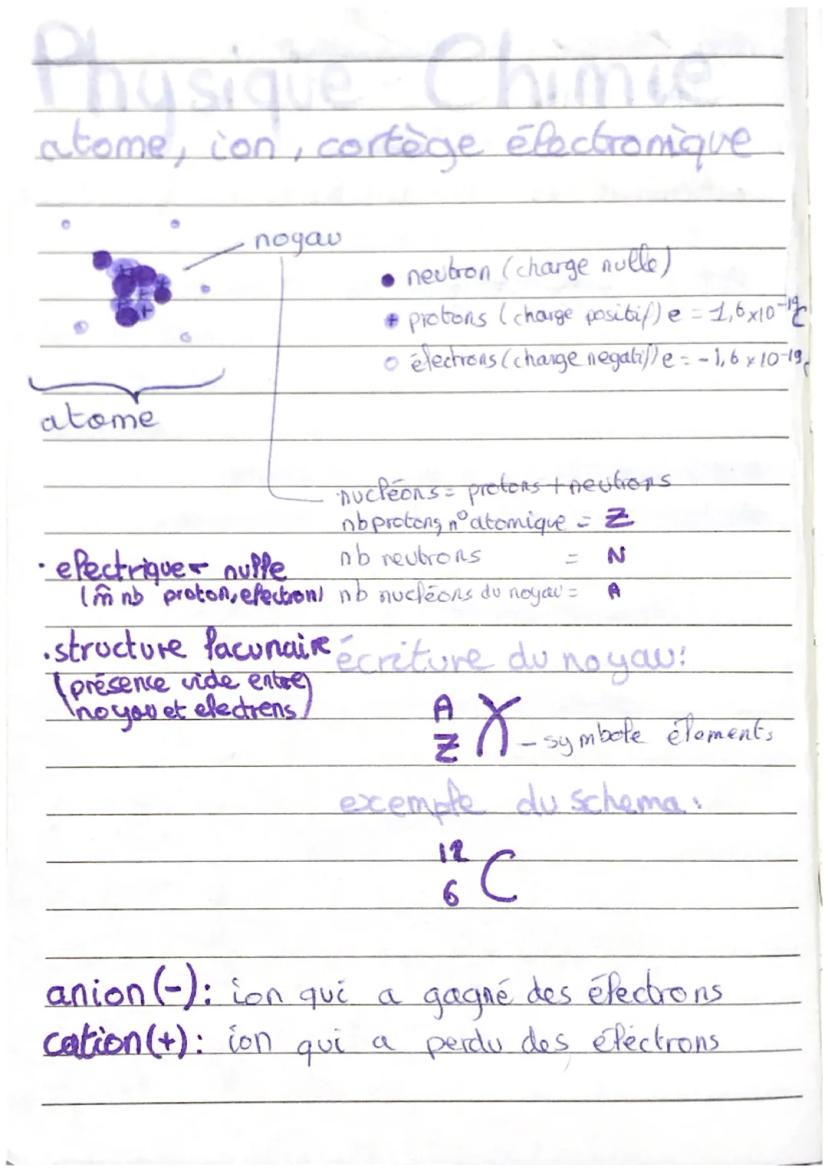 Physique Chimie
atome, ion, cortège électronique
noyau
neutron (charge nulle)
+ protons (charge positif) e = 1,6 x 10⁻¹⁹ C
électrons (charge negatif) e = -1,6 x 10⁻¹⁹ C
atome
nucléons = protons + neutrons
nb protons, n° atomique = Z
nb neutrons = N
nb nucléons du noyau = A
• electrique nulle
(m̂ nb proton, electron)
• structure lacunaire
(présence vide entre
noyau et electrons)
écriture du noyau:
A
Z X - symbole éléments
exemple du schema:
12
6 C
anion (-): ion qui a gagné des électrons
cation (+): ion qui a perdu des électrons